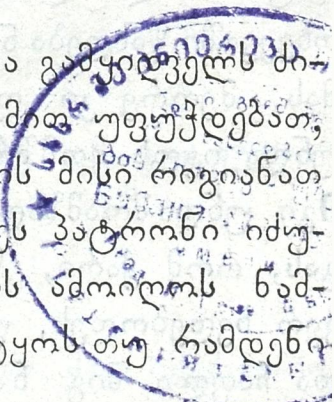 ა გამყიდველს ძი-
მით უფუჭდებათ,
ს მისი რიგიანათ
ს პატრონი იძუ-
ს ამოიღოს ნამ-
ტყოს თუ რამდენი